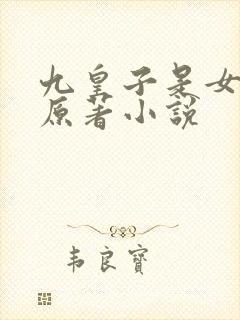 九皇子是女
原著小說
韦良寶